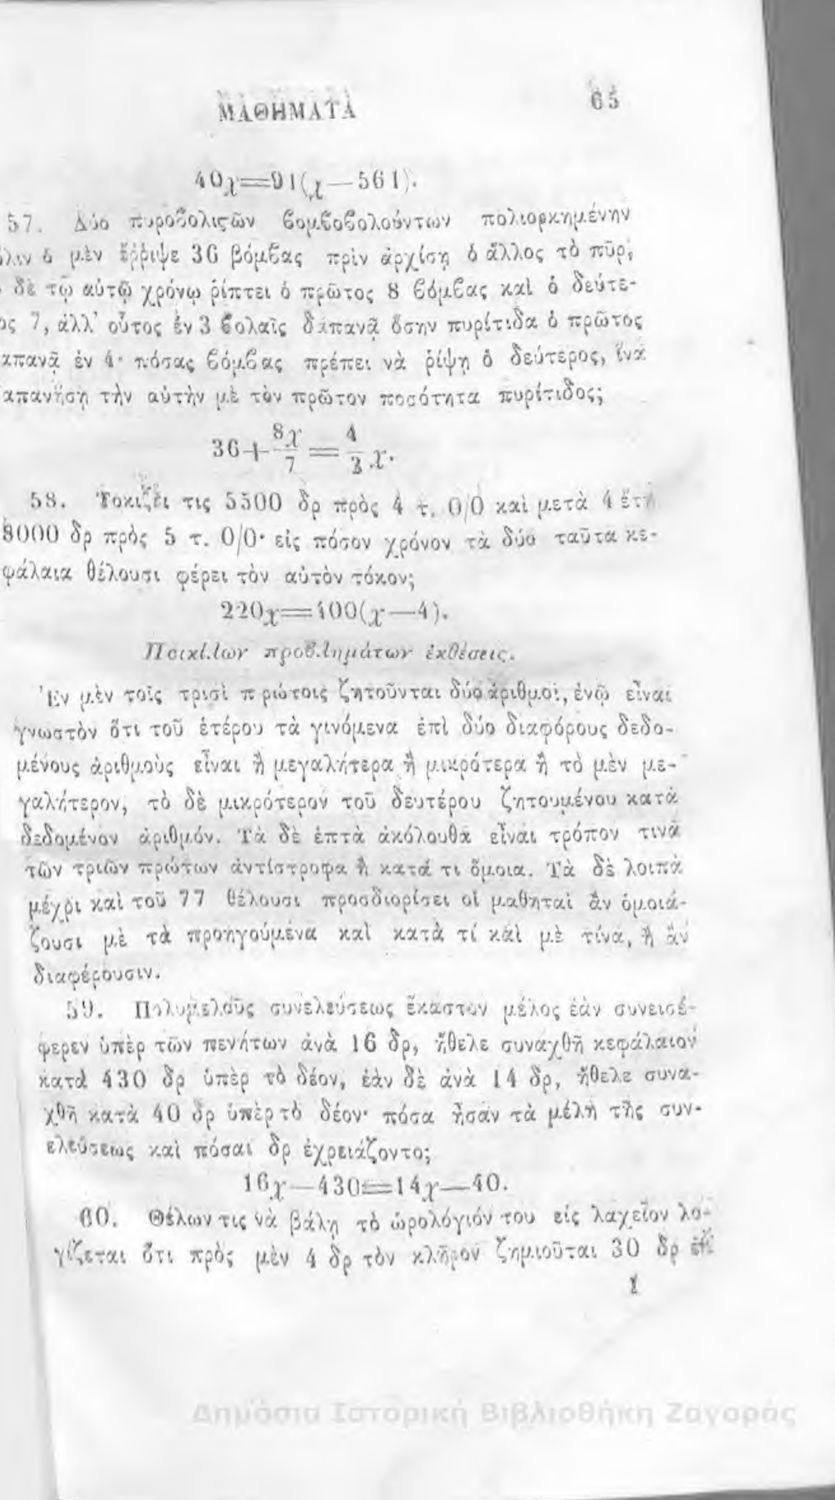 ΜΑΘΗΜΑΤΑ 65
40χ=91(χ—561).
57. Δύο πυροβολιστῶν βομβοβολούντων πολιορκημένην
ὁ μὲν ἔῤῥιψε 36 βόμβας πρὶν ἀρχίσῃ ὁ ἄλλος τὸ πῦρ,
δὲ τῷ αὐτῷ χρόνῳ ῥίπτει ὁ πρῶτος 8 βόμβας καὶ ὁ δεύτε-
ος 7, ἀλλ' οὗτος ἐν 3 βολαῖς δαπανᾷ ὅσην πυρίτιδα ὁ πρῶτος
απανᾷ ἐν 4· πόσας βόμβας πρέπει νὰ ῥίψῃ ὁ δεύτερος, ἵνα
απανήσῃ τὴν αὐτὴν μὲ τὸν πρῶτον ποσότητα πυρίτιδος;
36+8χ/7=4/3χ.
58. Τοκίζει τις 5500 δρ πρὸς 4 τ. 0/0 καὶ μετὰ 4 ἔτη
8000 δρ πρὸς 5 τ. 0/0· εἰς πόσον χρόνον τὰ δύο ταῦτα κε-
φάλαια θέλουσι φέρει τὸν αὐτὸν τόκον;
220χ=400(χ—4).
Ποικίλων προβλημάτων ἐκθέσεις.
Ἐν μὲν τοῖς τρισὶ πρώτοις ζητοῦνται δύο ἀριθμοὶ, ἐνῷ εἶναι
γνωστὸν ὅτι τοῦ ἑτέρου τὰ γινόμενα ἐπὶ δύο διαφόρους δεδο-
μένους ἀριθμοὺς εἶναι ἢ μεγαλήτερα ἢ μικρότερα ἢ τὸ μὲν με-
γαλήτερον, τὸ δὲ μικρότερον τοῦ δευτέρου ζητουμένου κατὰ
δεδομένον ἀριθμόν. Τὰ δὲ ἑπτὰ ἀκόλουθα εἶναι τρόπον τινὰ
τῶν τριῶν πρώτων ἀντίστροφα ἢ κατά τι ὅμοια. Τὰ δὲ λοιπὰ
μέχρι καὶ τοῦ 77 θέλουσι προσδιορίσει οἱ μαθηταὶ ἂν ὁμοιά-
ζουσι μὲ τὰ προηγούμενα καὶ κατὰ τί καὶ μὲ τίνα, ἢ ἂν
διαφέρουσιν.
59. Πολυμελοῦς συνελεύσεως ἕκαστον μέλος ἐὰν συνεισέ-
φερεν ὑπὲρ τῶν πενήτων ἀνὰ 16 δρ, ἤθελε συναχθῆ κεφάλαιον
κατὰ 430 δρ ὑπὲρ τὸ δέον, ἐὰν δὲ ἀνὰ 14 δρ, ἤθελε συνα-
χθῆ κατὰ 40 δρ ὑπὲρ τὸ δέον· πόσα ἦσαν τὰ μέλη τῆς συν-
ελεύσεως καὶ πόσαι δρ ἐχρειάζοντο;
16χ—430=14χ—40.
60. Θέλων τις νὰ βάλῃ τὸ ὡρολόγιόν του εἰς λαχεῖον λο-
γίζεται ὅτι πρὸς μὲν 4 δρ τὸν κλῆρον ζημιοῦται 30 δρ
Δημόσια Ιστορική Βιβλιοθήκη Ζαγοράς